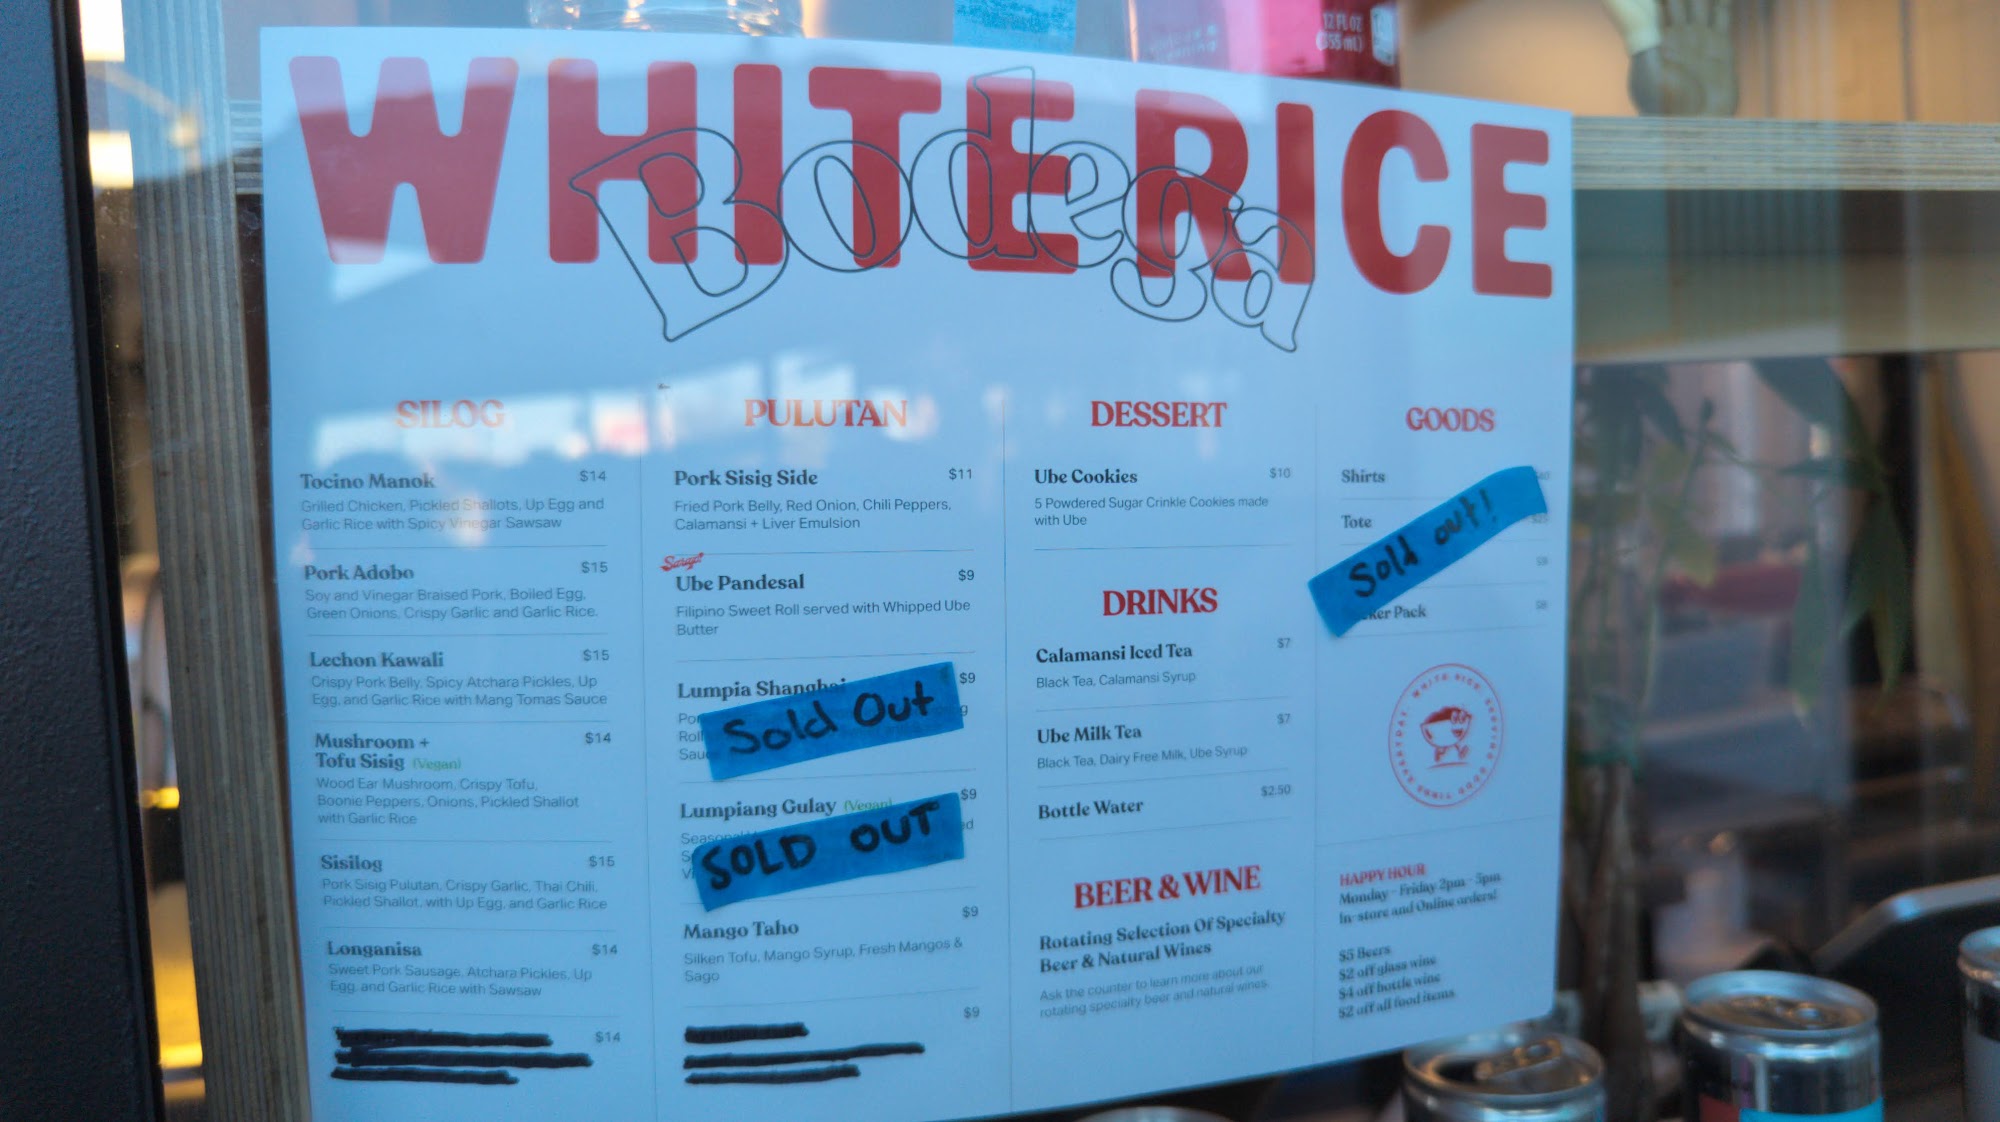 12 FL OZ
(355 mL)
WHITE RICE
Bodega
SILOG
Tocino Manok $14
Grilled Chicken, Pickled Shallots, Up Egg and
Garlic Rice with Spicy Vinegar Sawsaw
Pork Adobo $15
Soy and Vinegar Braised Pork, Boiled Egg,
Green Onions, Crispy Garlic and Garlic Rice.
Lechon Kawali $15
Crispy Pork Belly, Spicy Atchara Pickles, Up
Egg, and Garlic Rice with Mang Tomas Sauce
Mushroom + $14
Tofu Sisig (Vegan)
Wood Ear Mushroom, Crispy Tofu,
Boonie Peppers, Onions, Pickled Shallot
with Garlic Rice
Sisilog $15
Pork Sisig Pulutan, Crispy Garlic, Thai Chili,
Pickled Shallot, with Up Egg, and Garlic Rice
Longanisa $14
Sweet Pork Sausage, Atchara Pickles, Up
Egg, and Garlic Rice with Sawsaw
$14
PULUTAN
Pork Sisig Side $11
Fried Pork Belly, Red Onion, Chili Peppers,
Calamansi + Liver Emulsion
Sarap!
Ube Pandesal $9
Filipino Sweet Roll served with Whipped Ube
Butter
Lumpia Shanghai $9
Sold Out
Lumpiang Gulay (Vegan) $9
SOLD OUT
Mango Taho $9
Silken Tofu, Mango Syrup, Fresh Mangos &
Sago
$9
DESSERT
Ube Cookies $10
5 Powdered Sugar Crinkle Cookies made
with Ube
DRINKS
Calamansi Iced Tea $7
Black Tea, Calamansi Syrup
Ube Milk Tea $7
Black Tea, Dairy Free Milk, Ube Syrup
Bottle Water $2.50
BEER & WINE
Rotating Selection Of Specialty
Beer & Natural Wines
Ask the counter to learn more about our
rotating specialty beer and natural wines.
GOODS
Shirts
Tote $25
Sold out!
$9
ker Pack $8
WHITE RICE. SERVING GOOD TIMES EVERYDAY.
HAPPY HOUR
Monday - Friday 2pm - 5pm
In-store and Online orders!
$5 Beers
$2 off glass wine
$4 off bottle wine
$2 off all food items